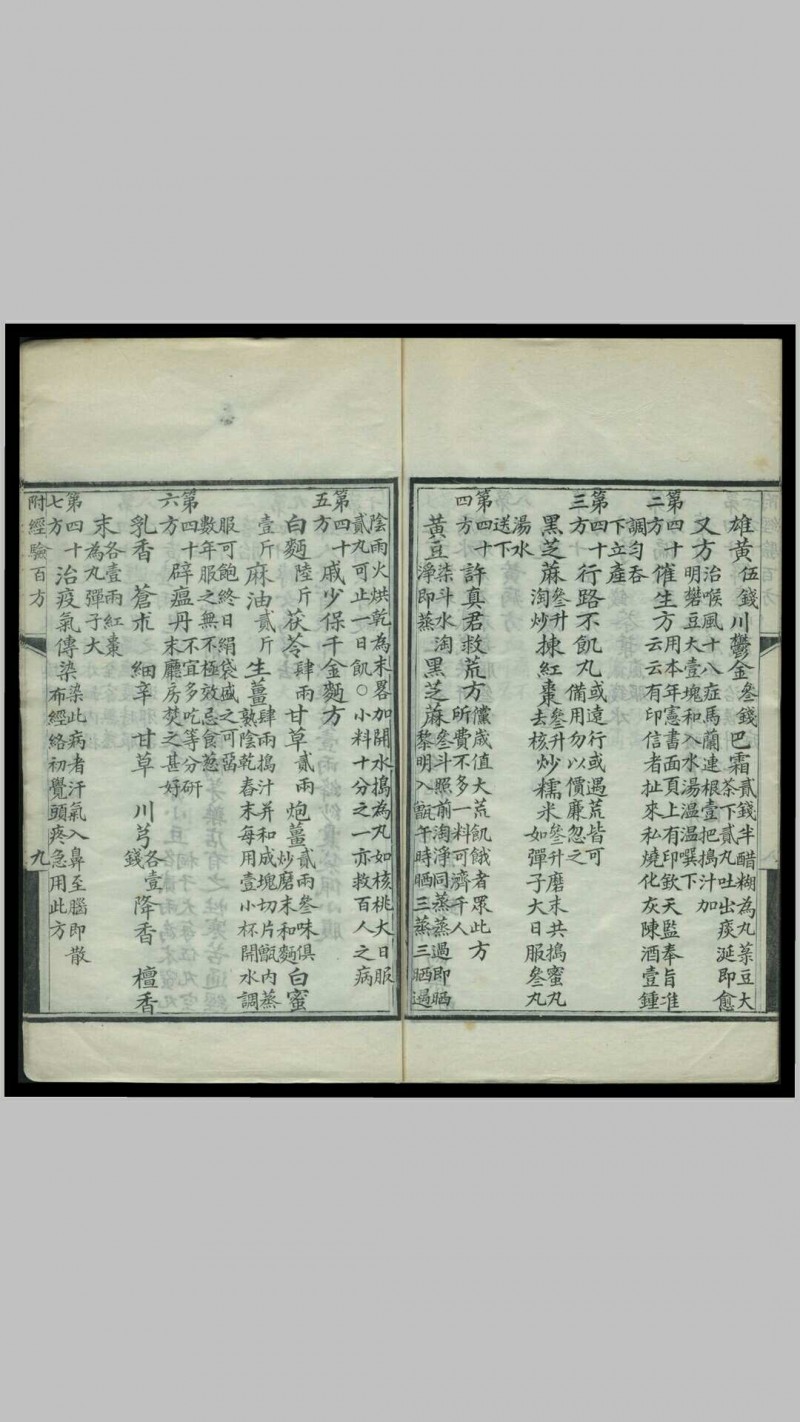 雄黃伍錢川鬱金叄錢巴霜貳錢半醋糊為丸菉豆大茶下貳丸吐出痰涎即愈
又方治喉風十八症馬蘭連根壹把搗汁加明礬豆大壹塊和入水湯溫溫噀下
第四十二方催生方用本年憲書面頁上有印欽天監奉旨准云云有印信者扯來私燒化灰陳酒壹鍾
調勻吞下立產
第四十三方行路不飢丸或遠行或遇荒皆可備用勿以價廉忽之
黑芝蔴叄升淘炒揀紅棗叄升去核炒糯米叄升磨末共搗蜜丸如彈子大日服叄丸
湯水送下
第四十四方許真君救荒方儻歲值大荒飢餓者眾此方所費不多一料可濟千人
黃豆柒斗水淘淨即蒸黑芝蔴叄斗照前淘淨同蒸蒸過即晒黎明入甑午時晒三蒸三晒過
陰雨火烘乾為末畧加開水搗為丸如核桃大日服貳丸可止一日飢○小料十分之一亦救百人之病
第四十五方戚少保千金麵方
白麵陸斤茯苓肆兩甘草貳兩炮薑貳兩叄味俱炒磨末和麵白蜜
壹斤麻油貳斤生薑肆兩搗汁并和成塊切片甑內蒸熟陰乾舂末每用壹小杯開水調
服可飽終日絹袋盛之可畱數年服之無不極效忌食葱
第四十六方辟瘟丹不宜多吃等分研末廳房焚之甚好
乳香 蒼朮 細辛 甘草 川芎各壹錢降香 檀香
末各壹兩紅棗為丸彈子大
第四十七方治疫氣傳染染此病者汗氣入鼻至腦即散布經絡初覺頭疼急用此方
附經驗百方 九